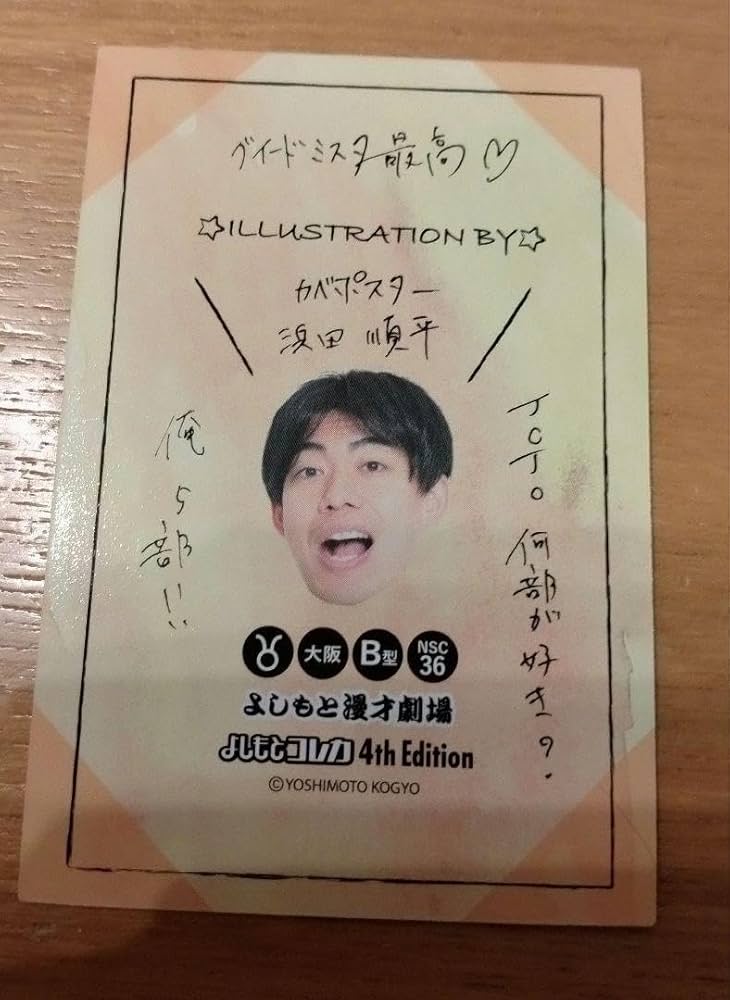 グイードミスタ最高♡
☆ILLUSTRATION BY☆
カベポスター
浜田 順平
JOJO 何部が好き?
俺 5部!!
♉ 大阪 B型 NSC 36
よしもと漫才劇場
よしもとコレカ 4th Edition
©YOSHIMOTO KOGYO